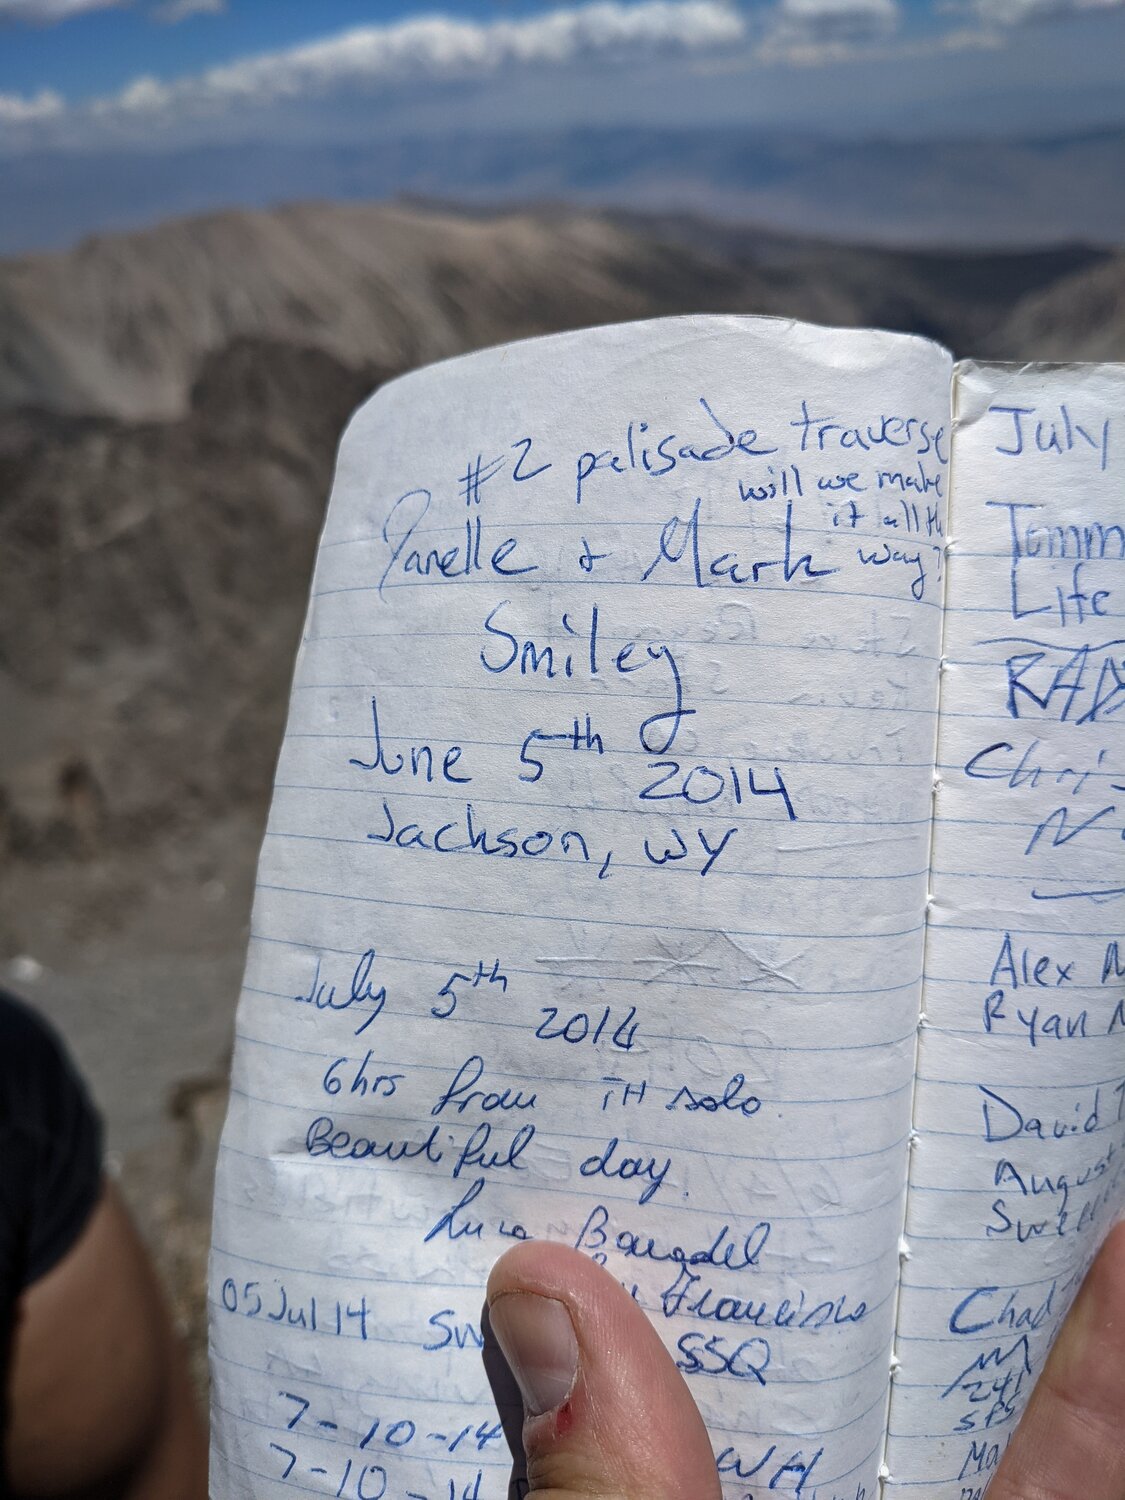 #2 palisade traverse
will we make
it all th
way?
Janelle & Mark
Smiley
June 5th 2014
Jackson, WY
July 5th 2014
6hrs from TH solo.
Beautiful day.
Luca
Francisco
05 Jul 14 SSQ
7-10-14 WH
7-10-14
July
Tomm
Life
RAD
Chri
Alex M
Ryan M
David
August
Chad